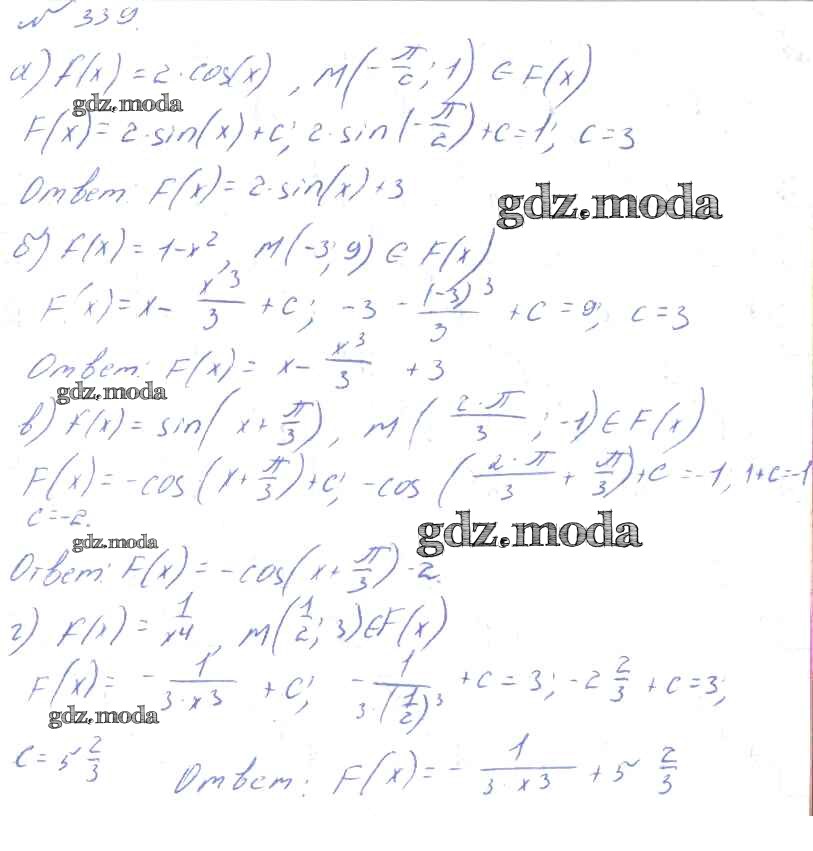 № 339.
а) f(x) = 2·cos(x), M(-π/2; 1) ∈ F(x)
gdz.moda
F(x) = 2·sin(x) + C; 2·sin(-π/2) + C = 1; C = 3
Ответ: F(x) = 2·sin(x) + 3
gdz.moda
б) f(x) = 1 - x², M(-3; 9) ∈ F(x)
F(x) = x - x³/3 + C; -3 - (-3)³/3 + C = 9; C = 3
Ответ: F(x) = x - x³/3 + 3
gdz.moda
в) f(x) = sin(x + π/3), M(2·π/3; -1) ∈ F(x)
F(x) = -cos(x + π/3) + C; -cos(2·π/3 + π/3) + C = -1; 1 + C = -1
C = -2.
gdz.moda
gdz.moda
Ответ: F(x) = -cos(x + π/3) - 2.
г) f(x) = 1/x⁴, M(1/2; 3) ∈ F(x)
F(x) = -1/(3·x³) + C; -1/(3·(1/2)³) + C = 3; -2 2/3 + C = 3;
gdz.moda
C = 5 2/3
Ответ: F(x) = -1/(3·x³) + 5 2/3